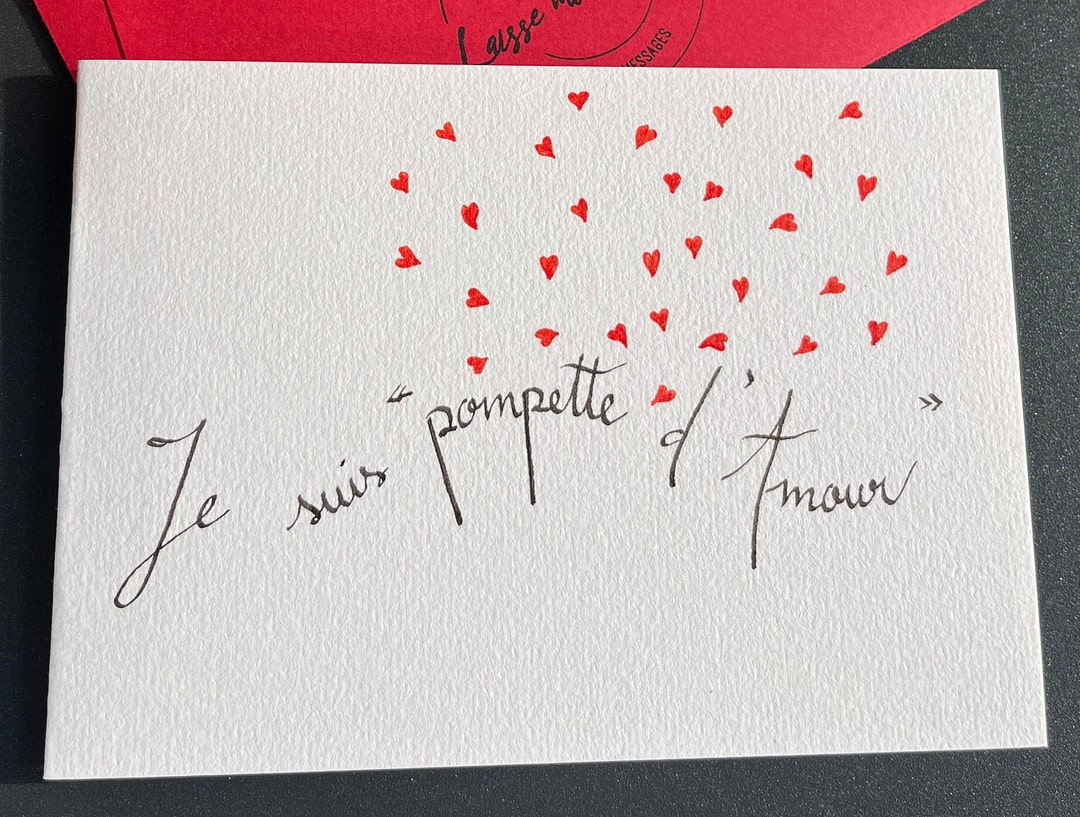 Laisse
MESSAGES
Je suis “pompette d'Amour »